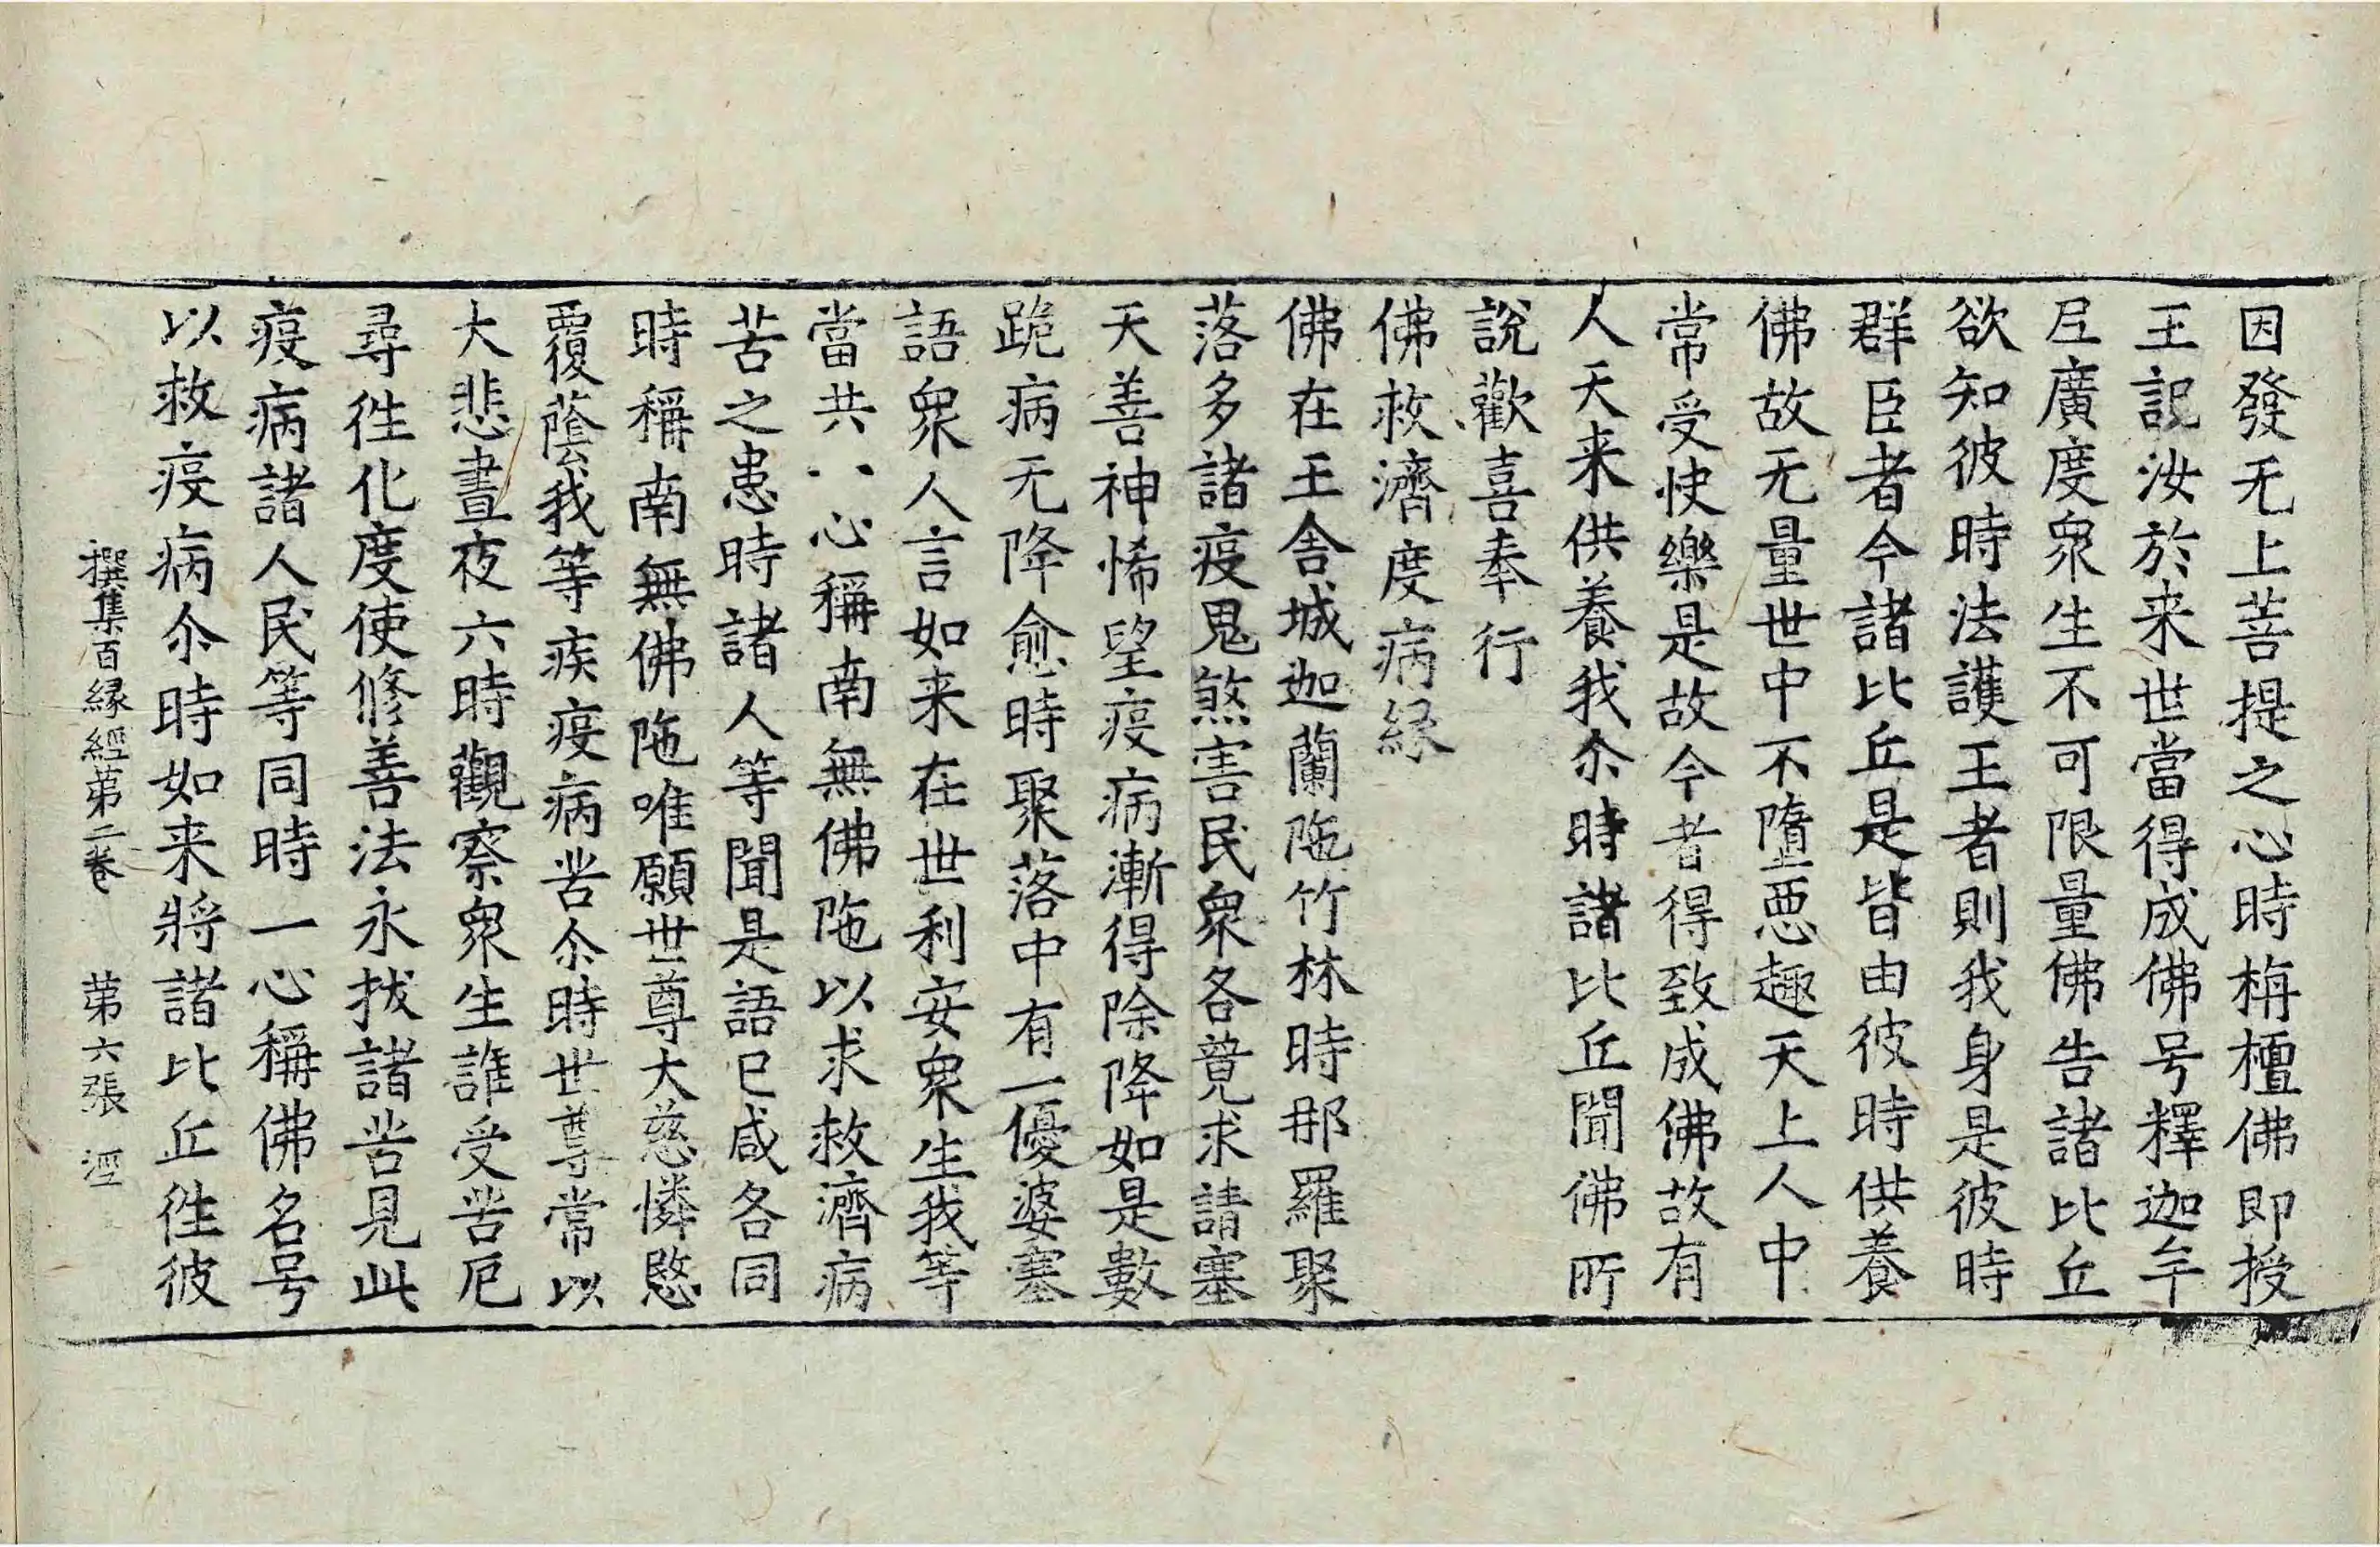 因發无上菩提之心時栴檀佛即授
王記汝於来世當得成佛号釋迦牟
𡰱廣度衆生不可限量佛告諸比丘
欲知彼時法護王者則我身是彼時
群臣者今諸比丘是皆由彼時供養
佛故无量世中不墮惡趣天上人中
常受快樂是故今者得致成佛故有
人天来供養我尒時諸比丘聞佛所
說歡喜奉行
佛救濟度病緣
佛在王舍城迦蘭陁竹林時那羅聚
落多諸疫鬼煞害民衆各競求請塞
天善神悕望疫病漸得除降如是數
跪病无降愈時聚落中有一優婆塞
語衆人言如来在世利安衆生我等
當共八心稱南無佛陁以求救濟病
苦之患時諸人等聞是語已咸各同
時稱南無佛陁唯願世尊大慈憐愍
覆蔭我等疾疫病苦尒時世尊常以
大悲晝夜六時觀察衆生誰受苦厄
尋往化度使修善法永拔諸苦見此
疫病諸人民等同時一心稱佛名号
以救疫病尒時如来將諸比丘往彼
撰集百緣經第二卷 第六張 涇